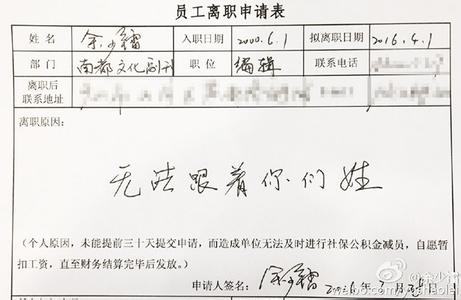 员工离职申请表
姓名 余少镭 入职日期 2000.6.1 拟离职日期 2016.4.1
部门 南都文化副刊 职位 编辑 联系电话
离职后
联系地址
离职原因:
无法跟着你们姓
(个人原因,未能提前三十天提交申请,而造成单位无法及时进行社保公积金减员,自愿暂
扣工资,直至财务结算完毕后发放。)
申请人签名: 余少镭 2016年3月28日
@余少镭